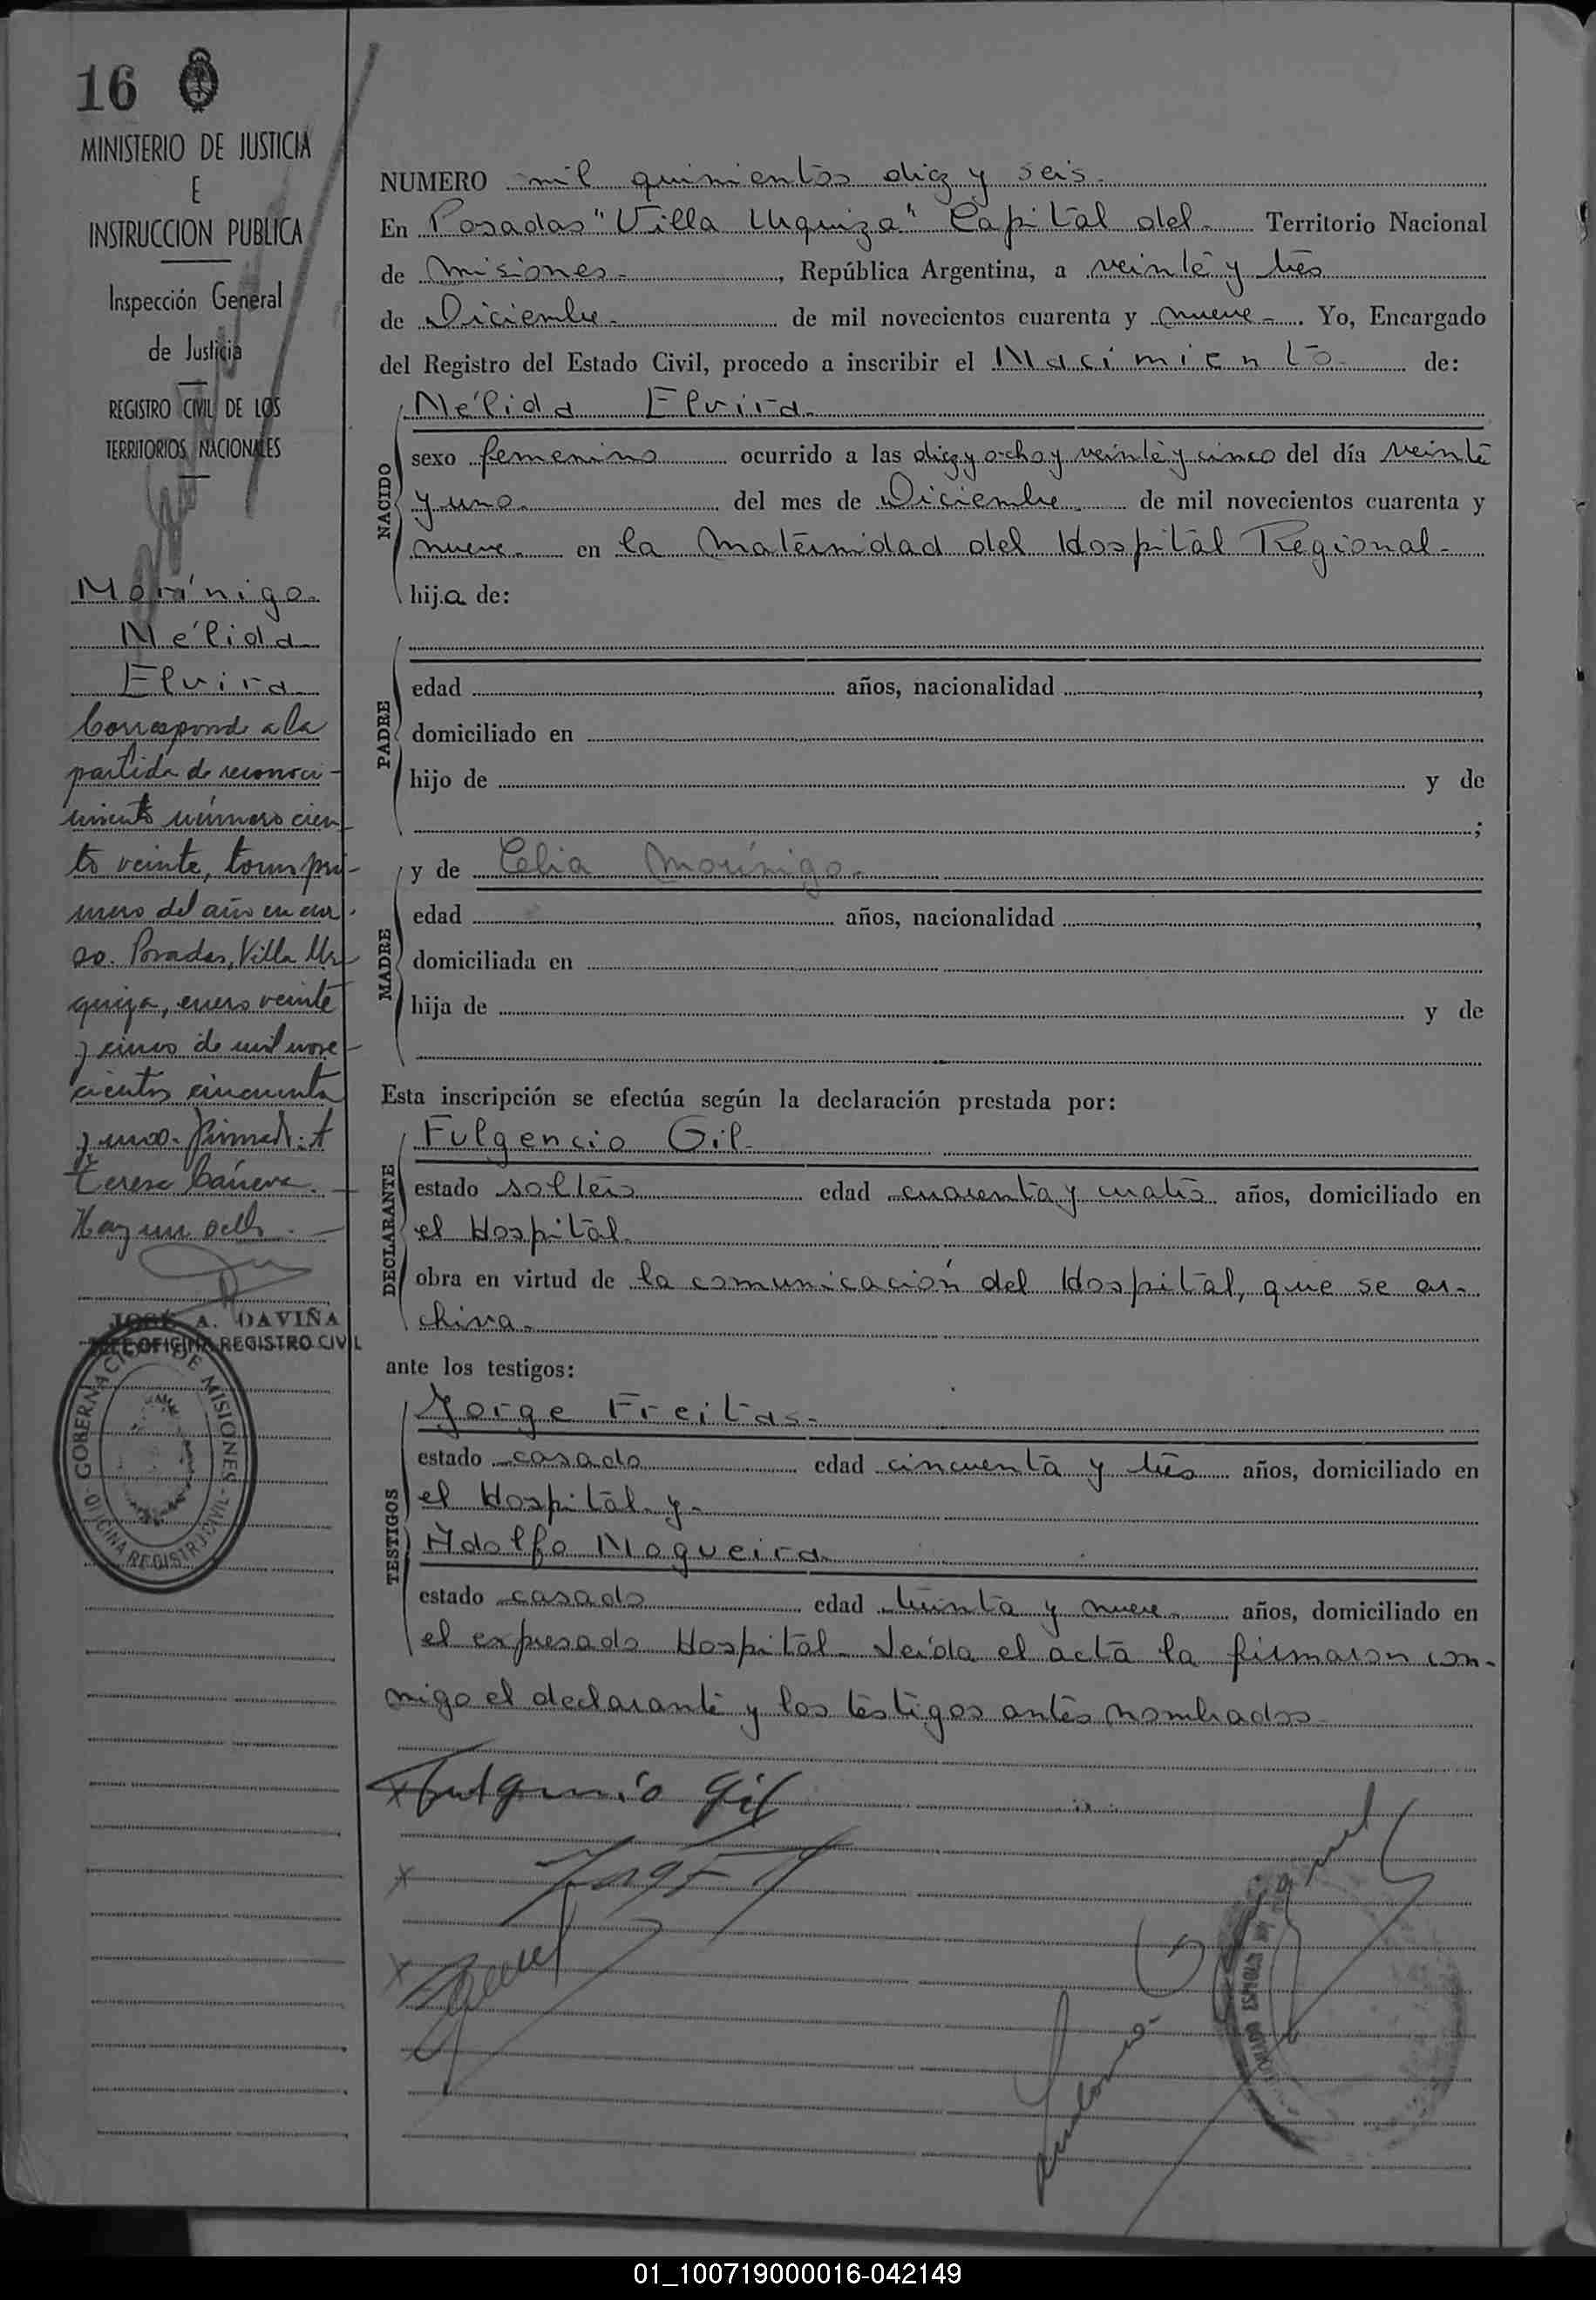 16
MINISTERIO DE JUSTICIA
E
INSTRUCCION PUBLICA
Inspección General
de Justicia
REGISTRO CIVIL DE LOS
TERRITORIOS NACIONALES
Morínigo
Nélida
Elvira
Corresponde a la
partida de reconoci-
miento número cien
to veinte, tomo pri-
mero del año en cur-
so. Posadas, Villa Ur-
quiza, enero veinte
y cinco de mil nove-
cientos cincuenta
y uno. Firmado: A
Teresa
Hay un sello.
JOSÉ A. DAVIÑA
JEFE OFICINA REGISTRO CIVIL
GOBERNACION DE MISIONES
OFICINA REGISTRO CIVIL
NUMERO mil quinientos diez y seis.
En Posadas "Villa Urquiza" Capital del Territorio Nacional
de Misiones, República Argentina, a veinte y tres
de Diciembre de mil novecientos cuarenta y nueve. Yo, Encargado
del Registro del Estado Civil, procedo a inscribir el Nacimiento de:
NACIDO
Nélida Elvira
sexo femenino ocurrido a las diez y ocho y veinte y cinco del día veinte
y uno del mes de Diciembre de mil novecientos cuarenta y
nueve en la Maternidad del Hospital Regional
hija de:
PADRE
edad años, nacionalidad ,
domiciliado en
hijo de y de
;
MADRE
y de Celia Morínigo
edad años, nacionalidad ,
domiciliada en
hija de y de
Esta inscripción se efectúa según la declaración prestada por:
DECLARANTE
Fulgencio Gil
estado soltero edad cuarenta y cuatro años, domiciliado en
el Hospital
obra en virtud de la comunicación del Hospital, que se ar-
chiva.
ante los testigos:
TESTIGOS
Jorge Freitas
estado casado edad cincuenta y tres años, domiciliado en
el Hospital y
Adolfo Nogueira
estado casado edad treinta y nueve años, domiciliado en
el expresado Hospital. Leída el acta la firmaron con-
migo el declarante y los testigos antes nombrados
Fulgencio Gil
01_100719000016-042149